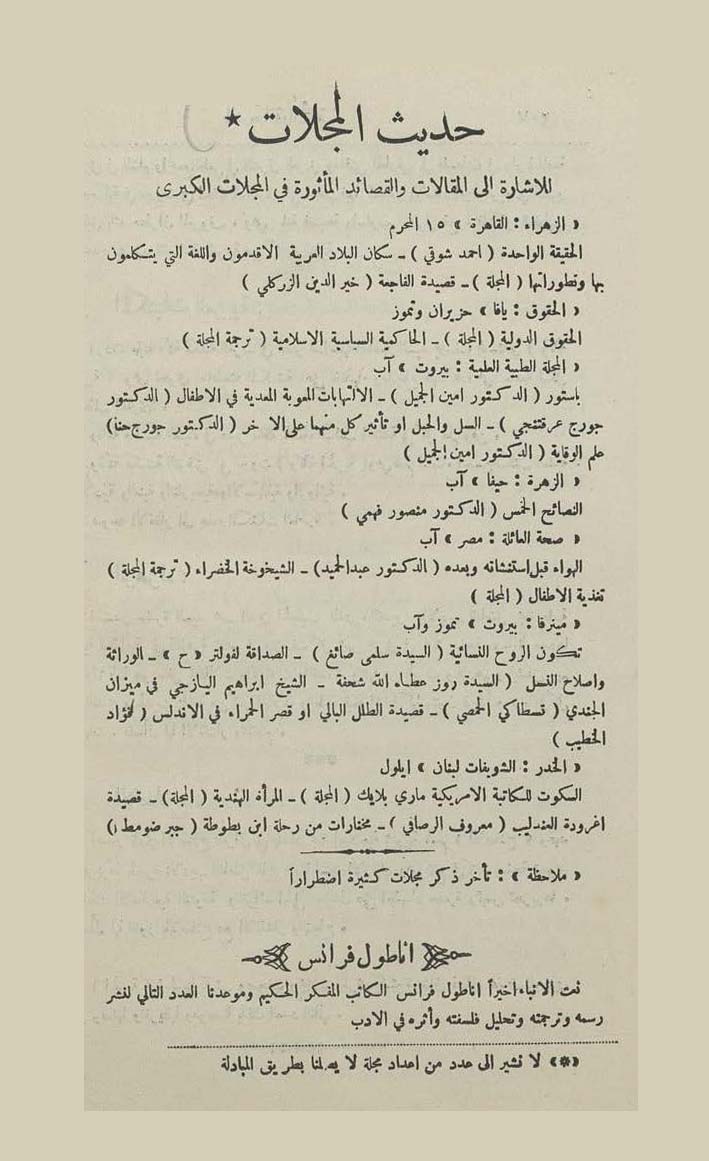 حديث المجلات *
للاشارة الى المقالات والقصائد المأثورة في المجلات الكبرى
« الزهراء : القاهرة » ١٥ المحرم
الحقيقة الواحدة ( احمد شوقي ) ــ سكان البلاد العربية الاقدمون واللغة التي يتكلمون
بها وتطوراتها ( المجلة ) ــ قصيدة الفاجعة ( خير الدين الزركلي )
« الحقوق : يافا » حزيران وتموز
الحقوق الدولية ( المجلة ) ــ الحاكمية السياسية الاسلامية ( ترجمة المجلة )
« المجلة الطبية العلمية : بيروت » آب
باستور ( الدكتور امين الجميل ) ــ الالتهابات المعوية المعدية في الاطفال ( الدكتور
جورج عرقتنجي ) ــ السل والحبل او تأثير كل منهما على الاخر ( الدكتور جورج حنا )
علم الوقاية ( الدكتور امين الجميل )
« الزهرة : حيفا » آب
النصائح الخمس ( الدكتور منصور فهمي )
« صحة العائلة : مصر » آب
الهواء قبل استنشاقه وبعده ( الدكتور عبدالحميد ) ــ الشيخوخة الخضراء ( ترجمة المجلة )
تغذية الاطفال ( المجلة )
« مينرفا : بيروت » تموز وآب
تكون الروح النسائية ( السيدة سلمى صائغ ) ــ الصداقة لفولتر « ح » ــ الوراثة
واصلاح النسل ( السيدة روز عطاء الله شحفة ــ الشيخ ابراهيم اليازجي في ميزان
الجندي ( قسطاكي الحمصي ) ــ قصيدة الطلل البالي او قصر الحمراء في الاندلس ( فؤاد
الخطيب )
« الخدر : الشويفات لبنان » ايلول
السكوت للكاتبة الامريكية ماري بلايك ( المجلة ) ــ المرأة الهندية ( المجلة ) ــ قصيدة
اغرودة العندليب ( معروف الرصافي ) ــ مختارات من رحلة ابن بطوطة ( جبر ضومط )
« ملاحظة » : تأخر ذكر مجلات كثيرة اضطراراً
اناطول فرانس
نعت الانباء اخيراً اناطول فرانس الكاتب المفكر الحكيم وموعدنا العدد التالي لنشر
رسمه وترجمته وتحليل فلسفته وأثره في الادب
«*» لا نشير الى عدد من اعداد مجلة لا يصلنا بطريق المبادلة